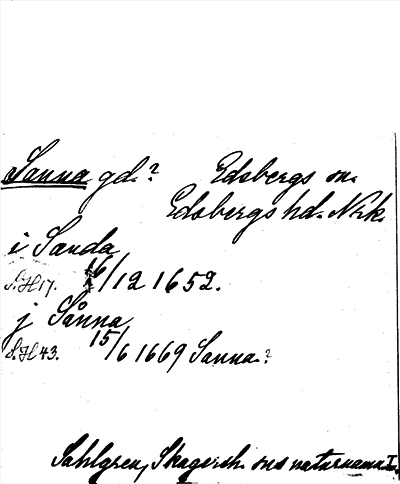 Sanna gd.? Edsbergs sn.
Edsbergs hd. Nrk.
i Sanda
S.H 17. 16/12 1652.
j Sånna
S.H 43. 15/6 1669 Sanna?
Sahlgren, Skagersh. sns naturnamn I.